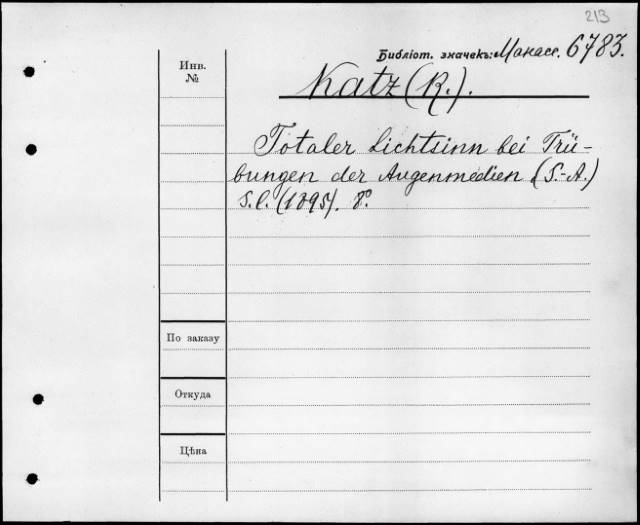 213
Библіот. значекъ: Манасс. 6783.
Инв.
№
Katz (R.).
Totaler Lichtsinn bei Trü-
bungen der Augenmedien (S.-A.)
S.l. (1895). 8º.
По заказу
Откуда
Цѣна